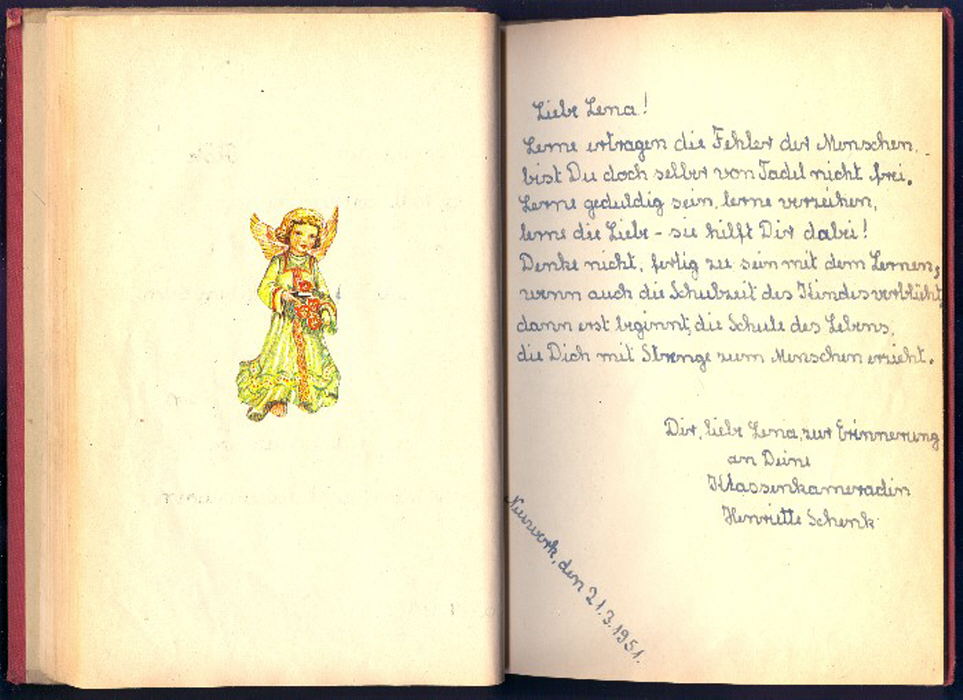 Liebe Lena!
Lerne ertragen die Fehler der Menschen,
bist Du doch selber von Tadel nicht frei.
Lerne geduldig sein, lerne verzeihen,
lerne die Liebe - sie hilft Dir dabei!
Denke nicht, fertig zu sein mit dem Lernen,
wenn auch die Schulzeit des Kindes verblüht,
dann erst beginnt, die Schule des Lebens,
die Dich mit Strenge zum Menschen erzieht.
Dir, liebe Lena, zur Erinnerung
an Deine
Klassenkameradin
Henriette Schenk
Neuwerk, den 21.3.1951.